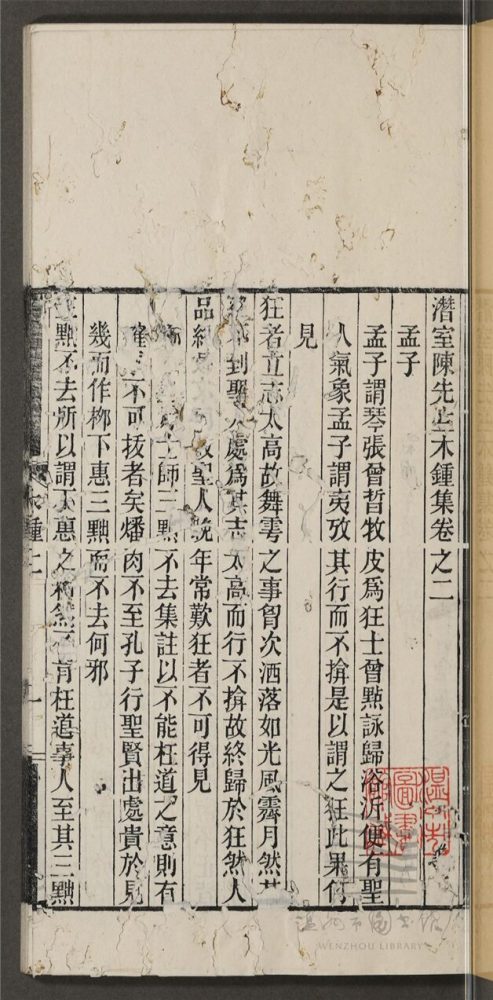 潛室陳先生木鍾集卷之二
孟子
孟子謂琴張曾晳牧皮爲狂士曾點詠歸浴沂便有聖
人氣象孟子謂夷攷其行而不揜是以謂之狂此果何
見
狂者立志太高故舞雩之事胷次洒落如光風霽月然其
到聖人處爲其志太高而行不揜故終歸於狂然人
品 聖人晚年常歎狂者不可得見
士師三黜不去集註以不能枉道之意則有
確 不可拔者矣燔肉不至孔子行聖賢出處貴於見
幾而作柳下惠三黜而不去何邪
三黜不去所以謂下惠之和然不肯枉道事人至其三黜
鍾二
一
溫州市圖書館
WENZHOU LIBRARY